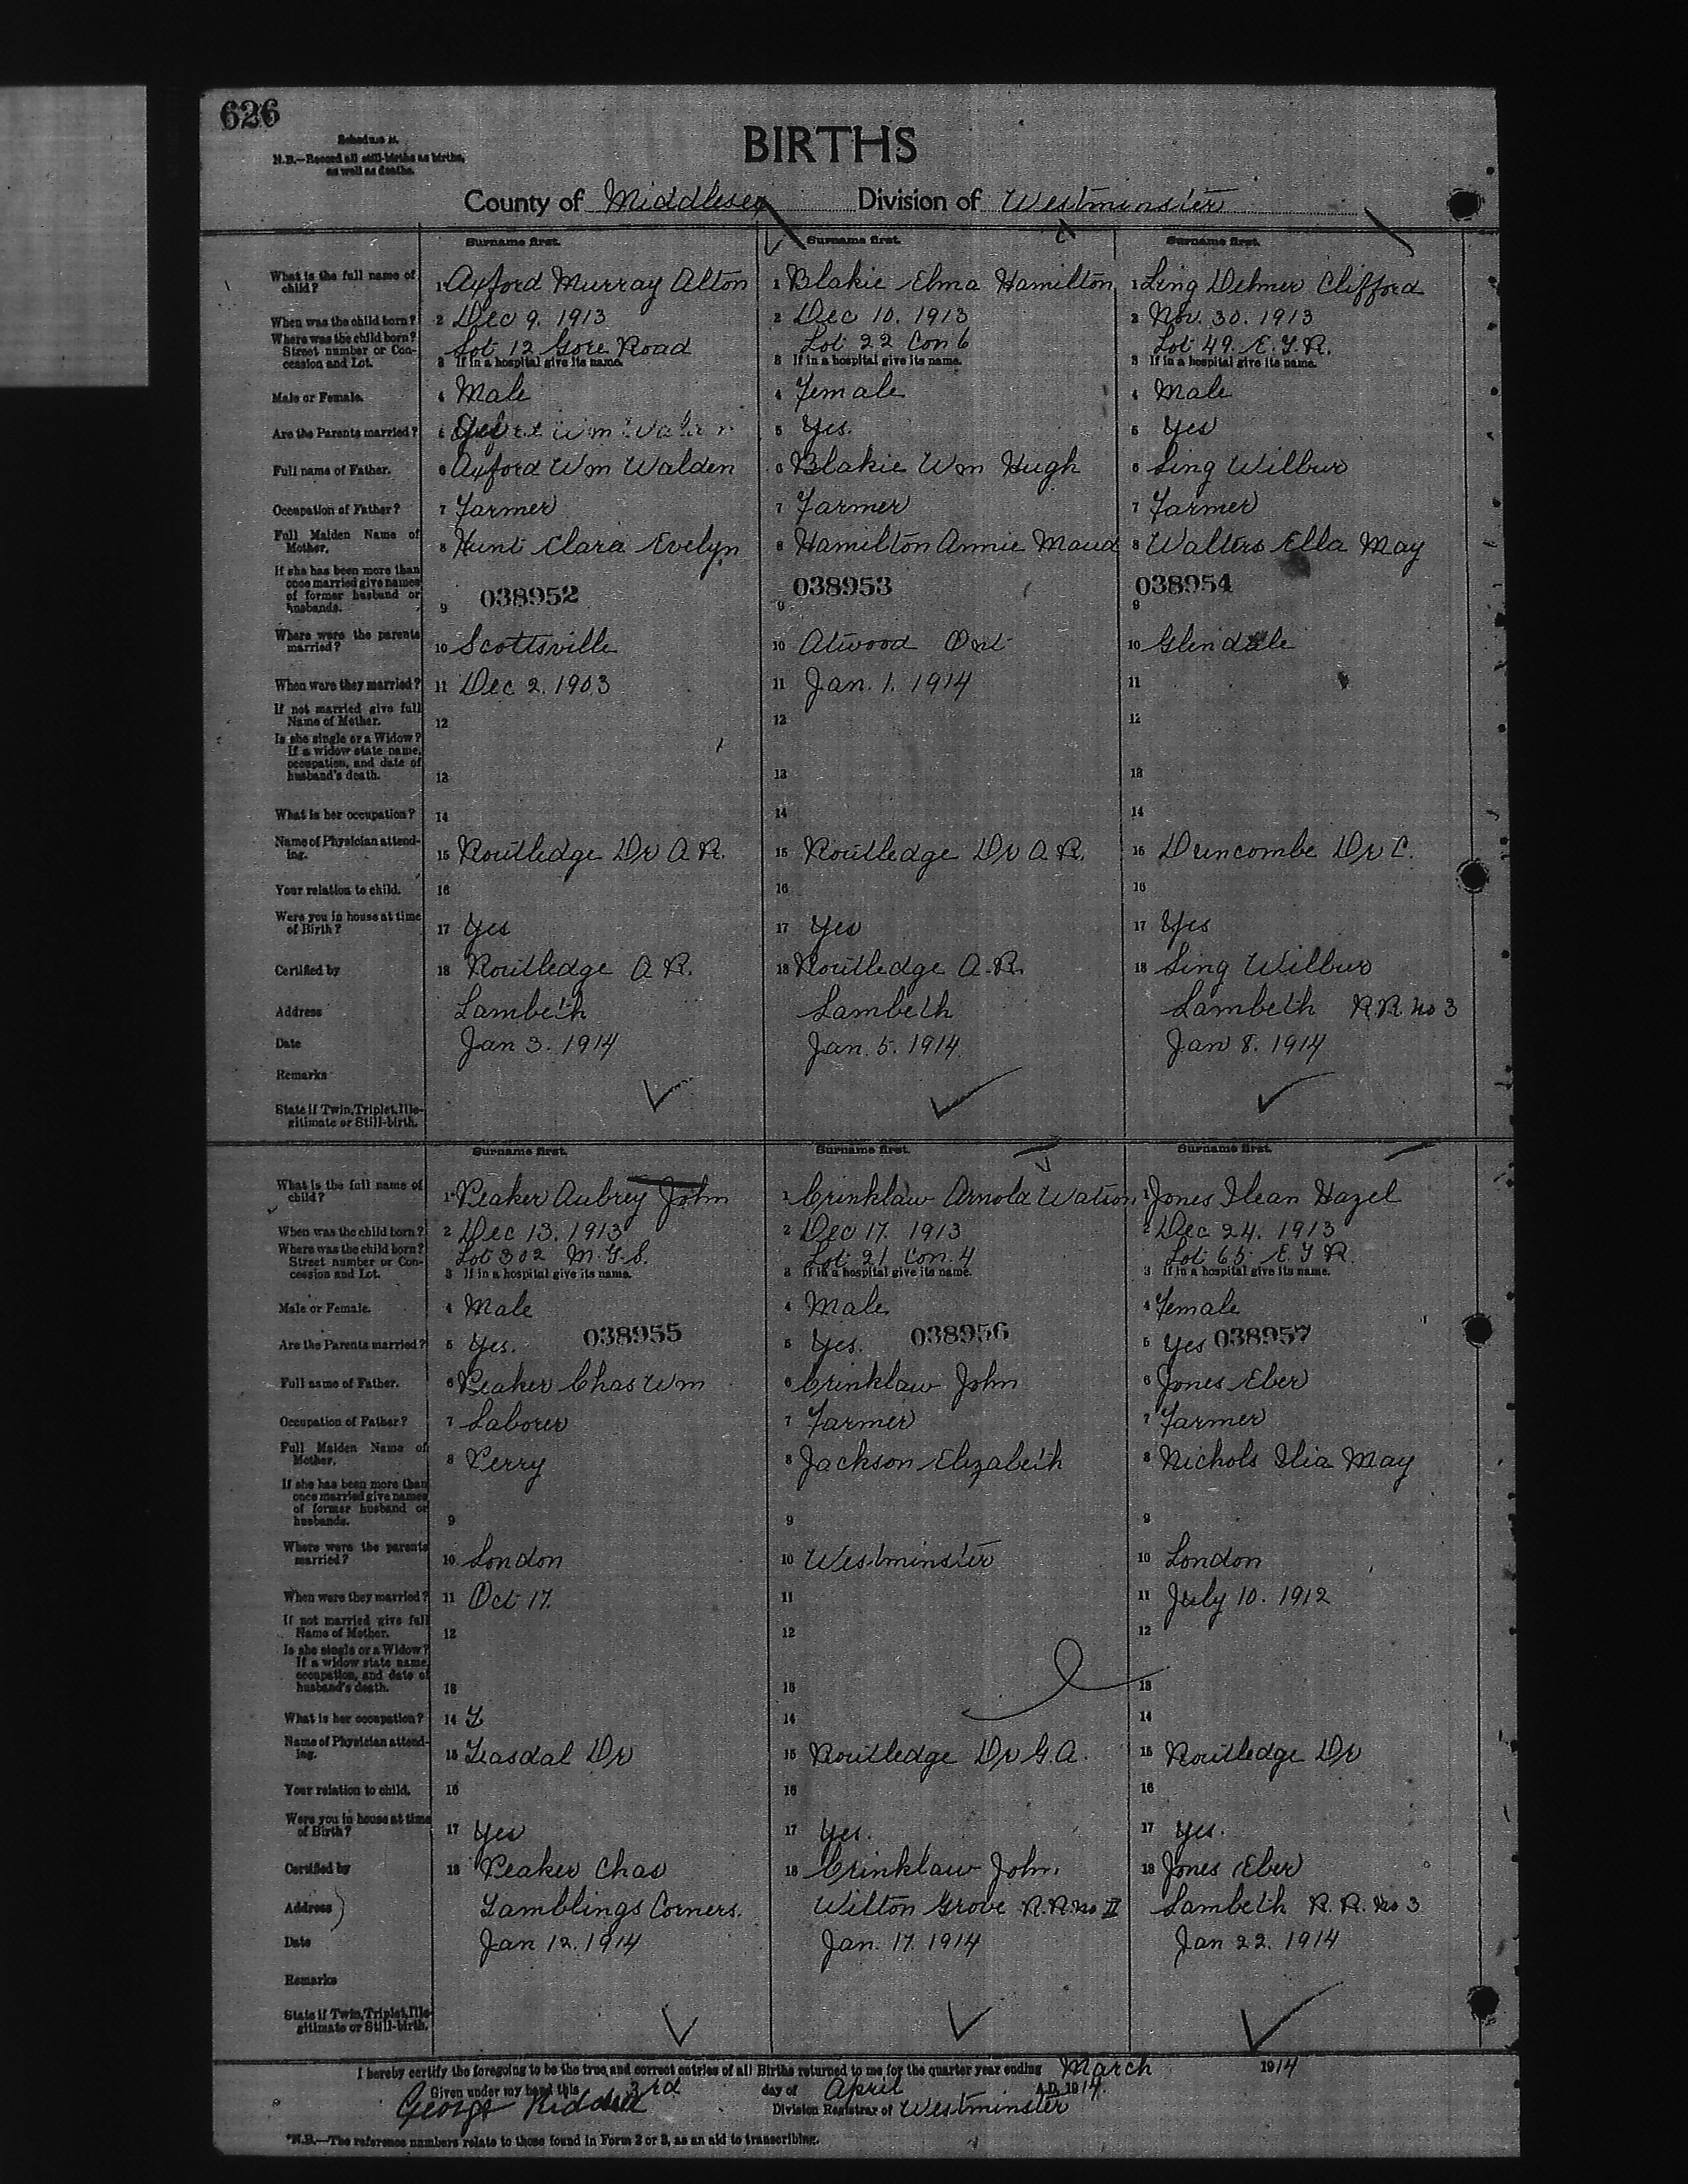 626
Schedule A.
N.B.—Record all still-births as births,
as well as deaths.
BIRTHS
County of Middlesex Division of Westminster
Surname first. Surname first. Surname first.
What is the full name of child? 1 Axford Murray Alton 1 Blakie Elma Hamilton 1 Ling Delmer Clifford
When was the child born? 2 Dec 9. 1913 2 Dec 10. 1913 2 Nov. 30. 1913
Where was the child born? Street number or Concession and Lot. Lot 12 Gore Road Lot 22 Con 6 Lot 49. E.T.R.
3 If in a hospital give its name. 3 If in a hospital give its name. 3 If in a hospital give its name.
Male or Female. 4 Male 4 Female 4 Male
Are the Parents married? 5 Yes 5 Yes. 5 Yes
Full name of Father. 6 Axford Wm Walden 6 Blakie Wm Hugh 6 Ling Wilbur
Occupation of Father? 7 Farmer 7 Farmer 7 Farmer
Full Maiden Name of Mother. 8 Hunt Clara Evelyn 8 Hamilton Annie Maud 8 Walters Ella May
If she has been more than once married give names of former husband or husbands. 9 038952 9 038953 9 038954
Where were the parents married? 10 Scottsville 10 Atwood Ont 10 Glendale
When were they married? 11 Dec 2. 1903 11 Jan. 1. 1914 11
If not married give full Name of Mother. 12 12 12
Is she single or a Widow? If a widow state name, occupation, and date of husband's death. 13 13 13
What is her occupation? 14 14 14
Name of Physician attending. 15 Routledge Dr A.R. 15 Routledge Dr A.R. 15 Duncombe Dr C.
Your relation to child. 16 16 16
Were you in house at time of Birth? 17 Yes 17 Yes 17 Yes
Certified by 18 Routledge A.R. 18 Routledge A.R. 18 Ling Wilbur
Address Lambeth Lambeth Lambeth R.R. No 3
Date Jan 3. 1914 Jan. 5. 1914 Jan 8. 1914
Remarks
State if Twin, Triplet, Illegitimate or Still-birth.
Surname first. Surname first. Surname first.
What is the full name of child? 1 Peaker Aubrey John 1 Crinklaw Arnold Watson 1 Jones Ilean Hazel
When was the child born? 2 Dec 13. 1913 2 Dec 17. 1913 2 Dec 24. 1913
Where was the child born? Street number or Concession and Lot. Lot 302 M.G.S. Lot 21 Con. 4 Lot 65 E.T.R.
3 If in a hospital give its name. 3 If in a hospital give its name. 3 If in a hospital give its name.
Male or Female. 4 Male 4 Male 4 Female
Are the Parents married? 5 Yes. 038955 5 Yes. 038956 5 Yes 038957
Full name of Father. 6 Peaker Chas Wm 6 Crinklaw John 6 Jones Eber
Occupation of Father? 7 Laborer 7 Farmer 7 Farmer
Full Maiden Name of Mother. 8 Perry 8 Jackson Elizabeth 8 Nichols Ilia May
If she has been more than once married give names of former husband or husbands. 9 9 9
Where were the parents married? 10 London 10 Westminster 10 London
When were they married? 11 Oct 17. 11 11 July 10. 1912
If not married give full Name of Mother. 12 12 12
Is she single or a Widow? If a widow state name, occupation, and date of husband's death. 13 13 13
What is her occupation? 14 14 14
Name of Physician attending. 15 Teasdal Dr 15 Routledge Dr G.A. 15 Routledge Dr
Your relation to child. 16 16 16
Were you in house at time of Birth? 17 Yes 17 Yes. 17 Yes.
Certified by 18 Peaker Chas 18 Crinklaw John. 18 Jones Eber
Address Tamblings Corners. Wilton Grove R.R. No II Lambeth R.R. No 3
Date Jan 12. 1914 Jan. 17. 1914 Jan 22. 1914
Remarks
State if Twin, Triplet, Illegitimate or Still-birth.
I hereby certify the foregoing to be the true and correct entries of all Births returned to me for the quarter year ending March 1914
Given under my hand this 3rd day of April A.D. 1914.
George Riddell Division Registrar of Westminster
*N.B.—The reference numbers relate to those found in Form 2 or 3, as an aid to transcribing.